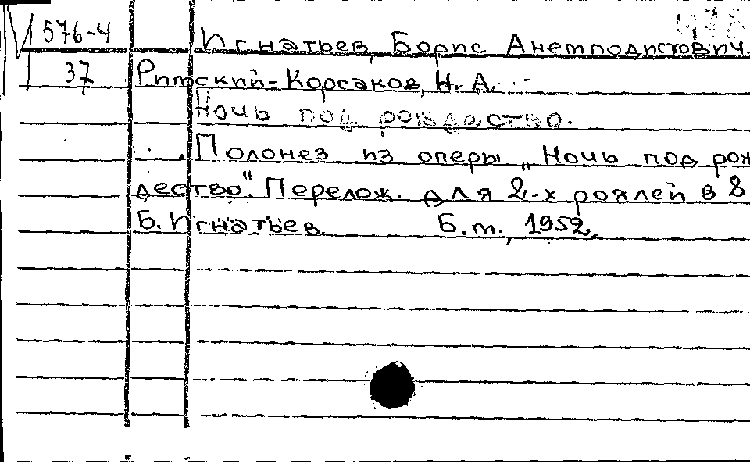 478
576-4 Игнатьев, Борис Анемподистович.
37 Римский-Корсаков, Н. А.
Ночь под рождество.
Полонез из оперы „Ночь под рож
дество". Перелож. для 2-х роялей в 8
Б. Игнатьев. Б.м., 1952.